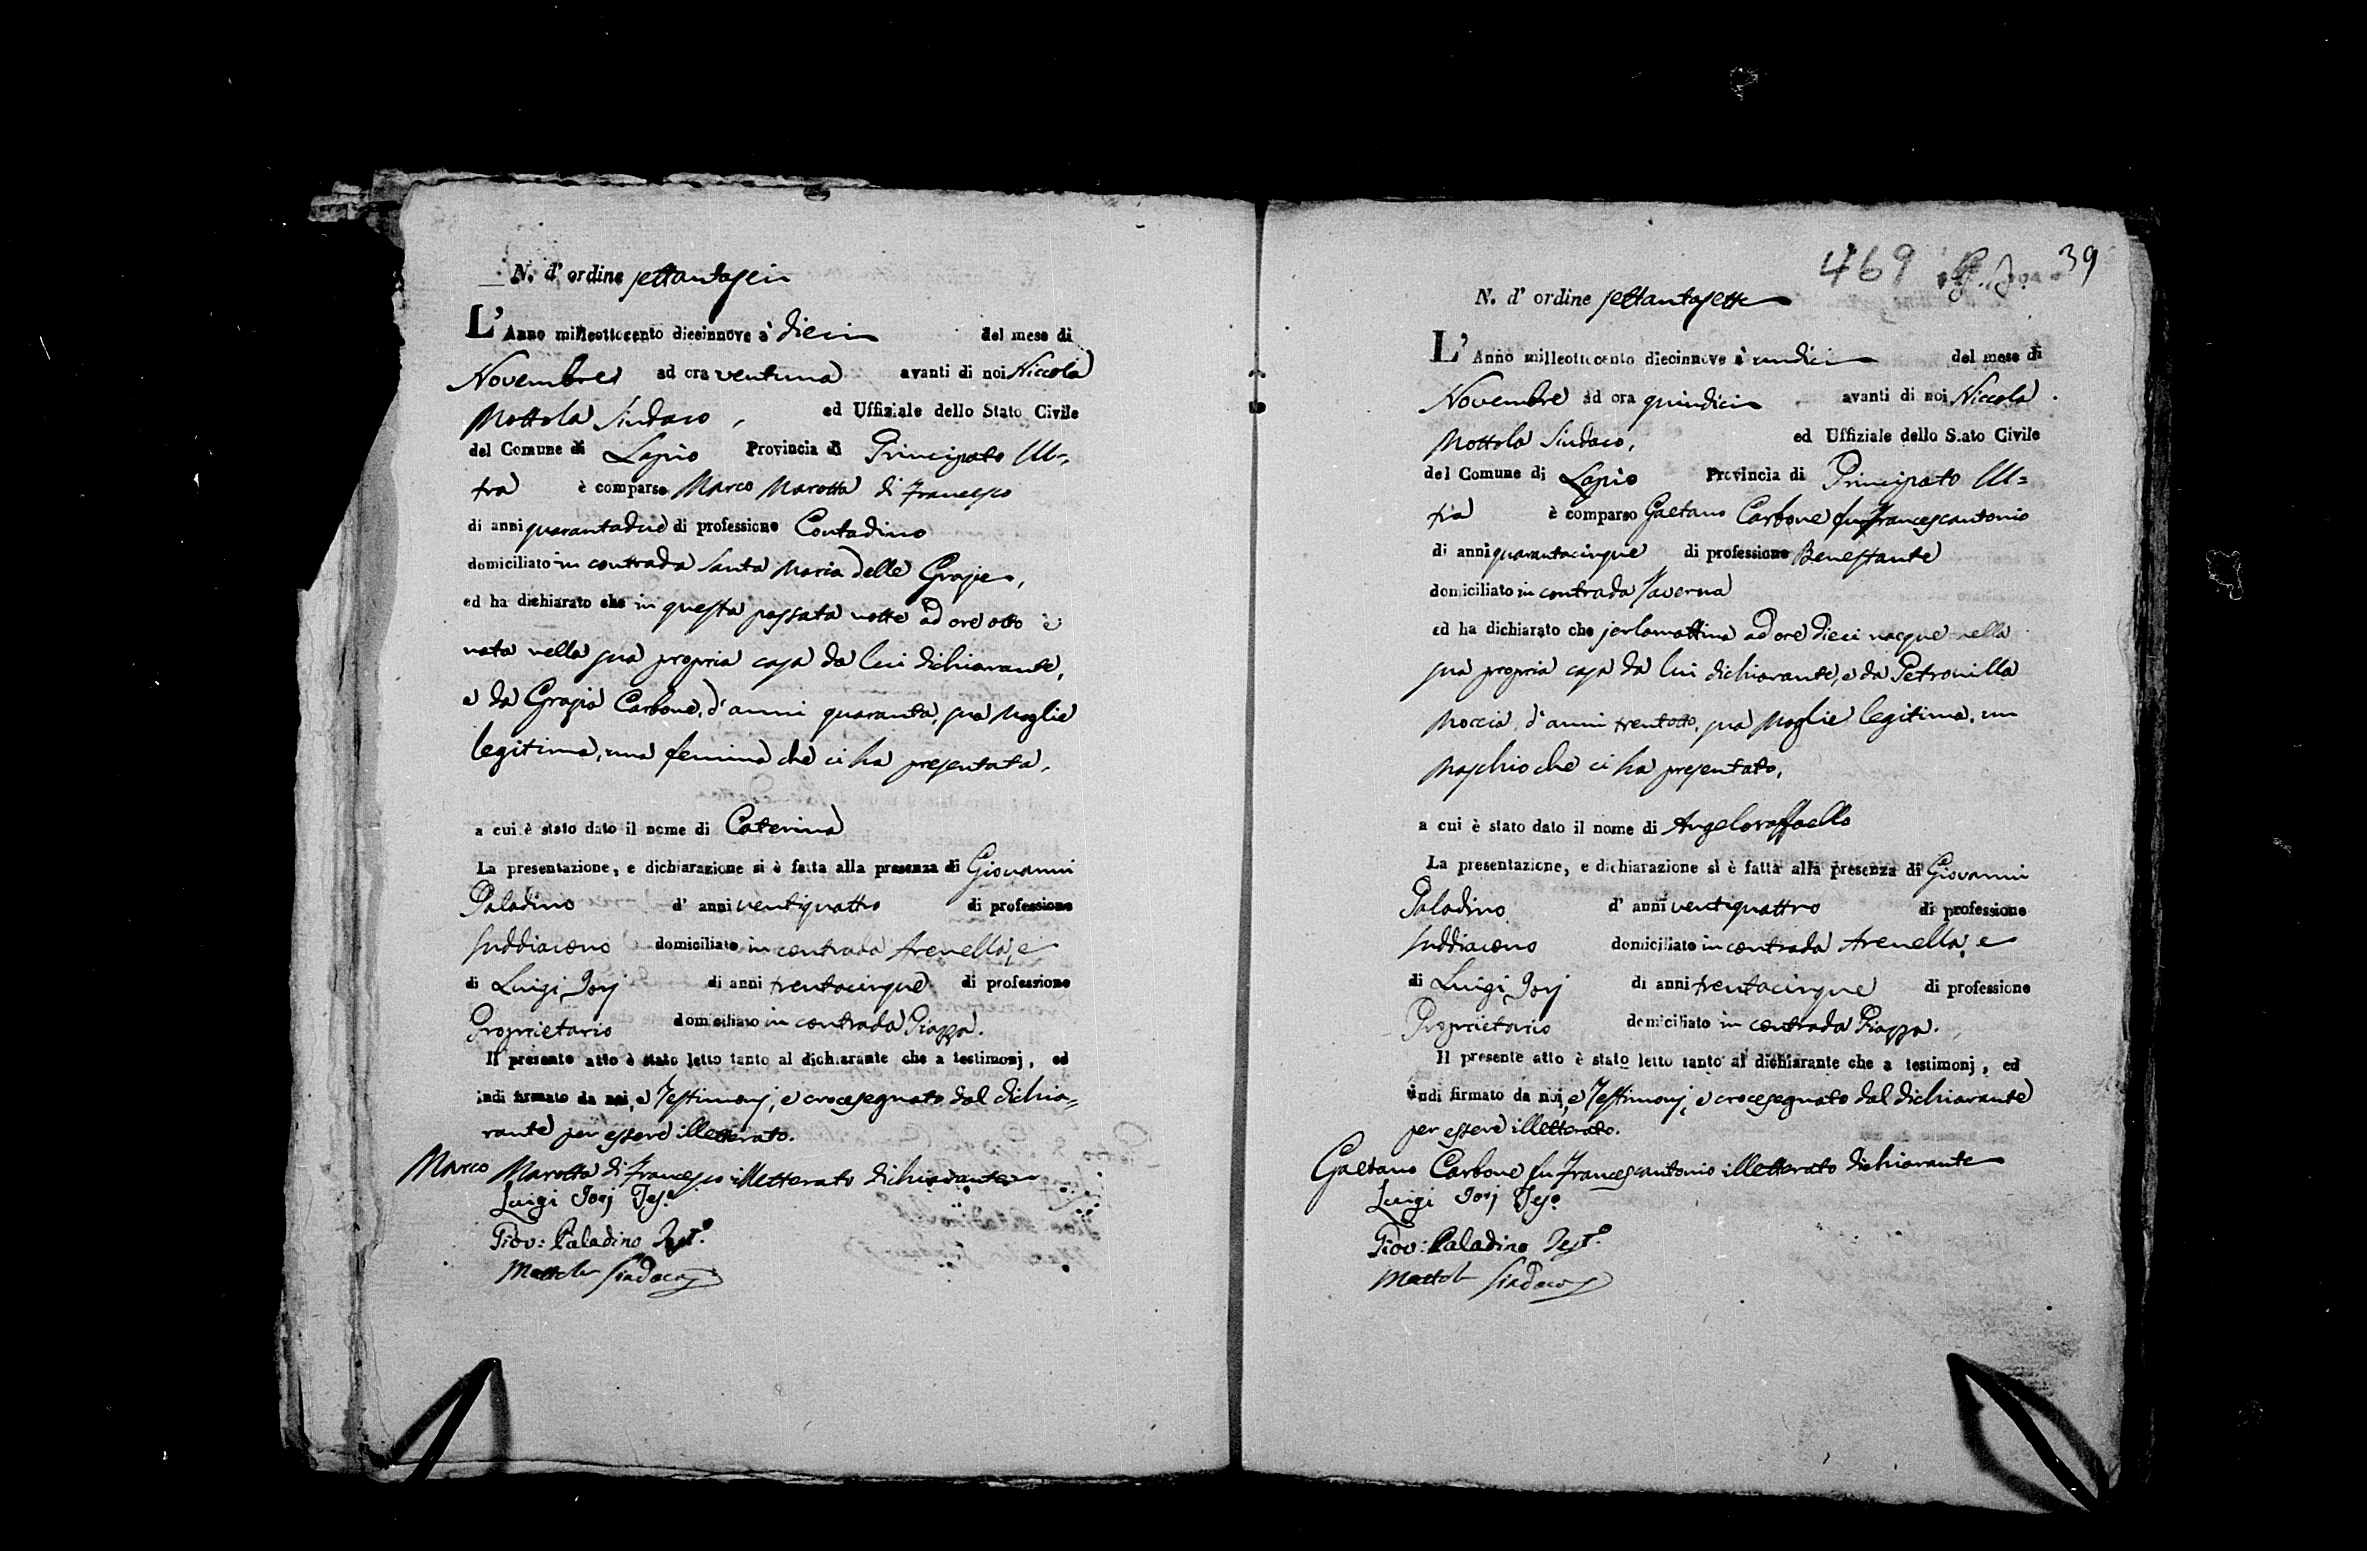 N. d' ordine settantasei
L' Anno milleottocento diecinnove à dieci del mese di
Novembre ad ora ventuna avanti di noi Niccola
Mottola Sindaco, ed Uffiziale dello Stato Civile
del Comune di Lapio Provincia di Principato Ul-
tra è comparso Marco Marotta di Francesco
di anni quarantadue di professione Contadino
domiciliato in contrada Santa Maria delle Grazie,
ed ha dichiarato che in questa passata notte ad ore otto è
nata nella sua propria casa da lui dichiarante,
e da Grazia Carbone, d'anni quaranta, sua Moglie
legitima, una femina che ci ha presentata,
a cui è stato dato il nome di Caterina
La presentazione, e dichiarazione si è fatta alla presenza di Giovanni
Paladino d' anni ventiquattro di professione
Suddiacono domiciliato in contrada Arenella, e
di Luigi Jorj di anni trentacinque di professione
Proprietario domiciliato in contrada Piazza.
Il presente atto è stato letto tanto al dichiarante che a testimonj, ed
indi firmato da noi, e Testimonj, e crocesegnato dal dichia=
rante per essere illetterato.
Marco Marotta di Francesco illetterato dichiarante
Luigi Jorj Tes.º
Giov: Paladino Test.º
Mottola Sindaco
469 39
N. d' ordine settantasette
L' Anno milleottocento diecinnove à undici del mese di
Novembre ad ora quindici avanti di noi Niccola
Mottola Sindaco, ed Uffiziale dello Stato Civile
del Comune di Lapio Provincia di Principato Ul=
tra è comparso Gaetano Carbone fu Francescantonio
di anni quarantacinque di professione Benestante
domiciliato in contrada Taverna
ed ha dichiarato che jerlamattina ad ore dieci nacque nella
sua propria casa da lui dichiarante, e da Petronilla
Moccia, d'anni trentotto, sua Moglie legitima, un
Maschio che ci ha presentato,
a cui è stato dato il nome di Angeloraffaello
La presentazione, e dichiarazione si è fatta alla presenza di Giovanni
Paladino d' anni ventiquattro di professione
Suddiacono domiciliato in contrada Arenella, e
di Luigi Jorj di anni trentacinque di professione
Proprietario domiciliato in contrada Piazza.
Il presente atto è stato letto tanto al dichiarante che a testimonj, ed
indi firmato da noi, e Testimonj, e crocesegnato dal dichiarante
per essere illetterato.
Gaetano Carbone fu Francescantonio illetterato dichiarante
Luigi Jorj Tes.º
Giov: Paladino Test.º
Mottola Sindaco